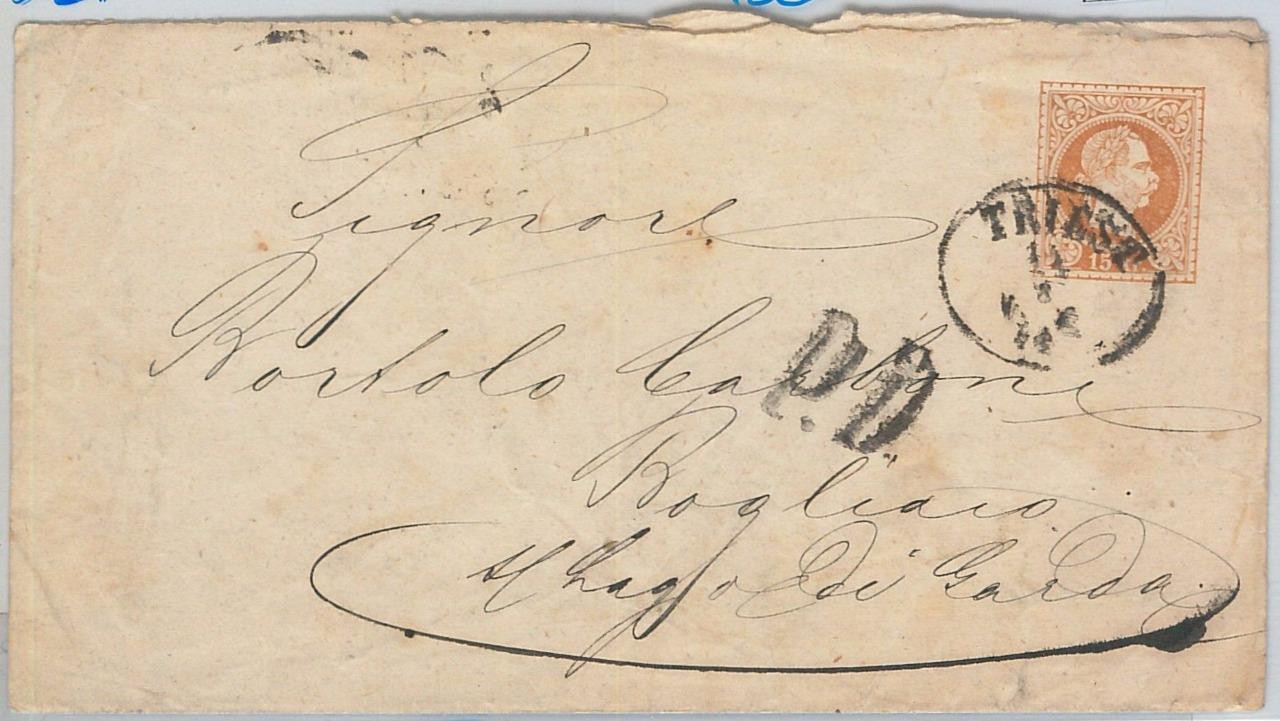 Signore
Bortolo
Bogliaco
s/ Lago di Garda
15
TRIEST
P.D.